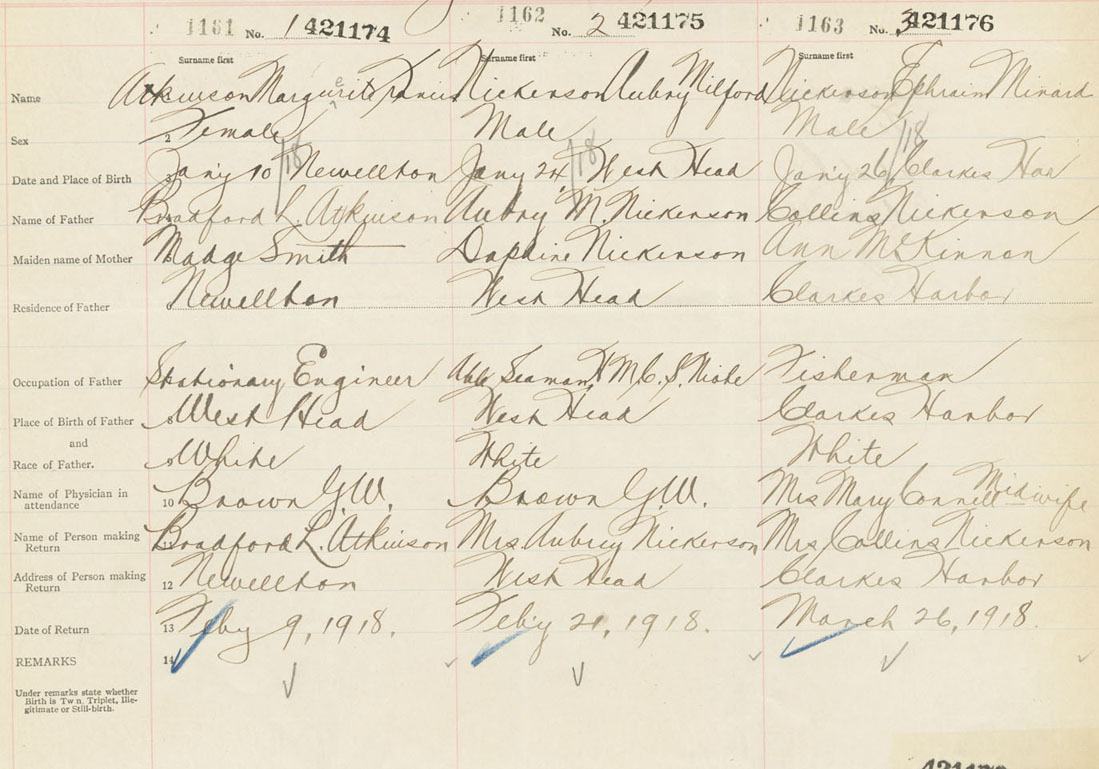 1161 No. 1 421174 1162 No. 2 421175 1163 No. 3 421176
Surname first Surname first Surname first
Name Atkinson Marguerite Nickerson Aubry Milford Nickerson Ephraim Minard
Sex 2 Female Male Male
Date and Place of Birth 3 Jan'y 10/18 Newellton Jany 24/18 West Head Jan'y 26/18 Clarkes Har
Name of Father Bradford L. Atkinson Aubry M. Nickerson Collins Nickerson
Maiden name of Mother Madge Smith Daphine Nickerson Ann McKinnon
Residence of Father Newellton West Head Clarkes Harbor
Occupation of Father Stationary Engineer Able Seaman H.M.C.S. Niobe Fisherman
Place of Birth of Father West Head West Head Clarkes Harbor
and
Race of Father. White White White
Name of Physician in attendance 10 Brown G.W. Brown G.W. Mrs Mary Connell Midwife
Name of Person making Return Bradford L. Atkinson Mrs Aubrey Nickerson Mrs Collins Nickerson
Address of Person making Return 12 Newellton West Head Clarkes Harbor
Date of Return 13 Feby 9, 1918. Feb'y 21, 1918. March 26, 1918.
REMARKS 14
Under remarks state whether
Birth is Twn, Triplet, Ille-
gitimate or Still-birth.